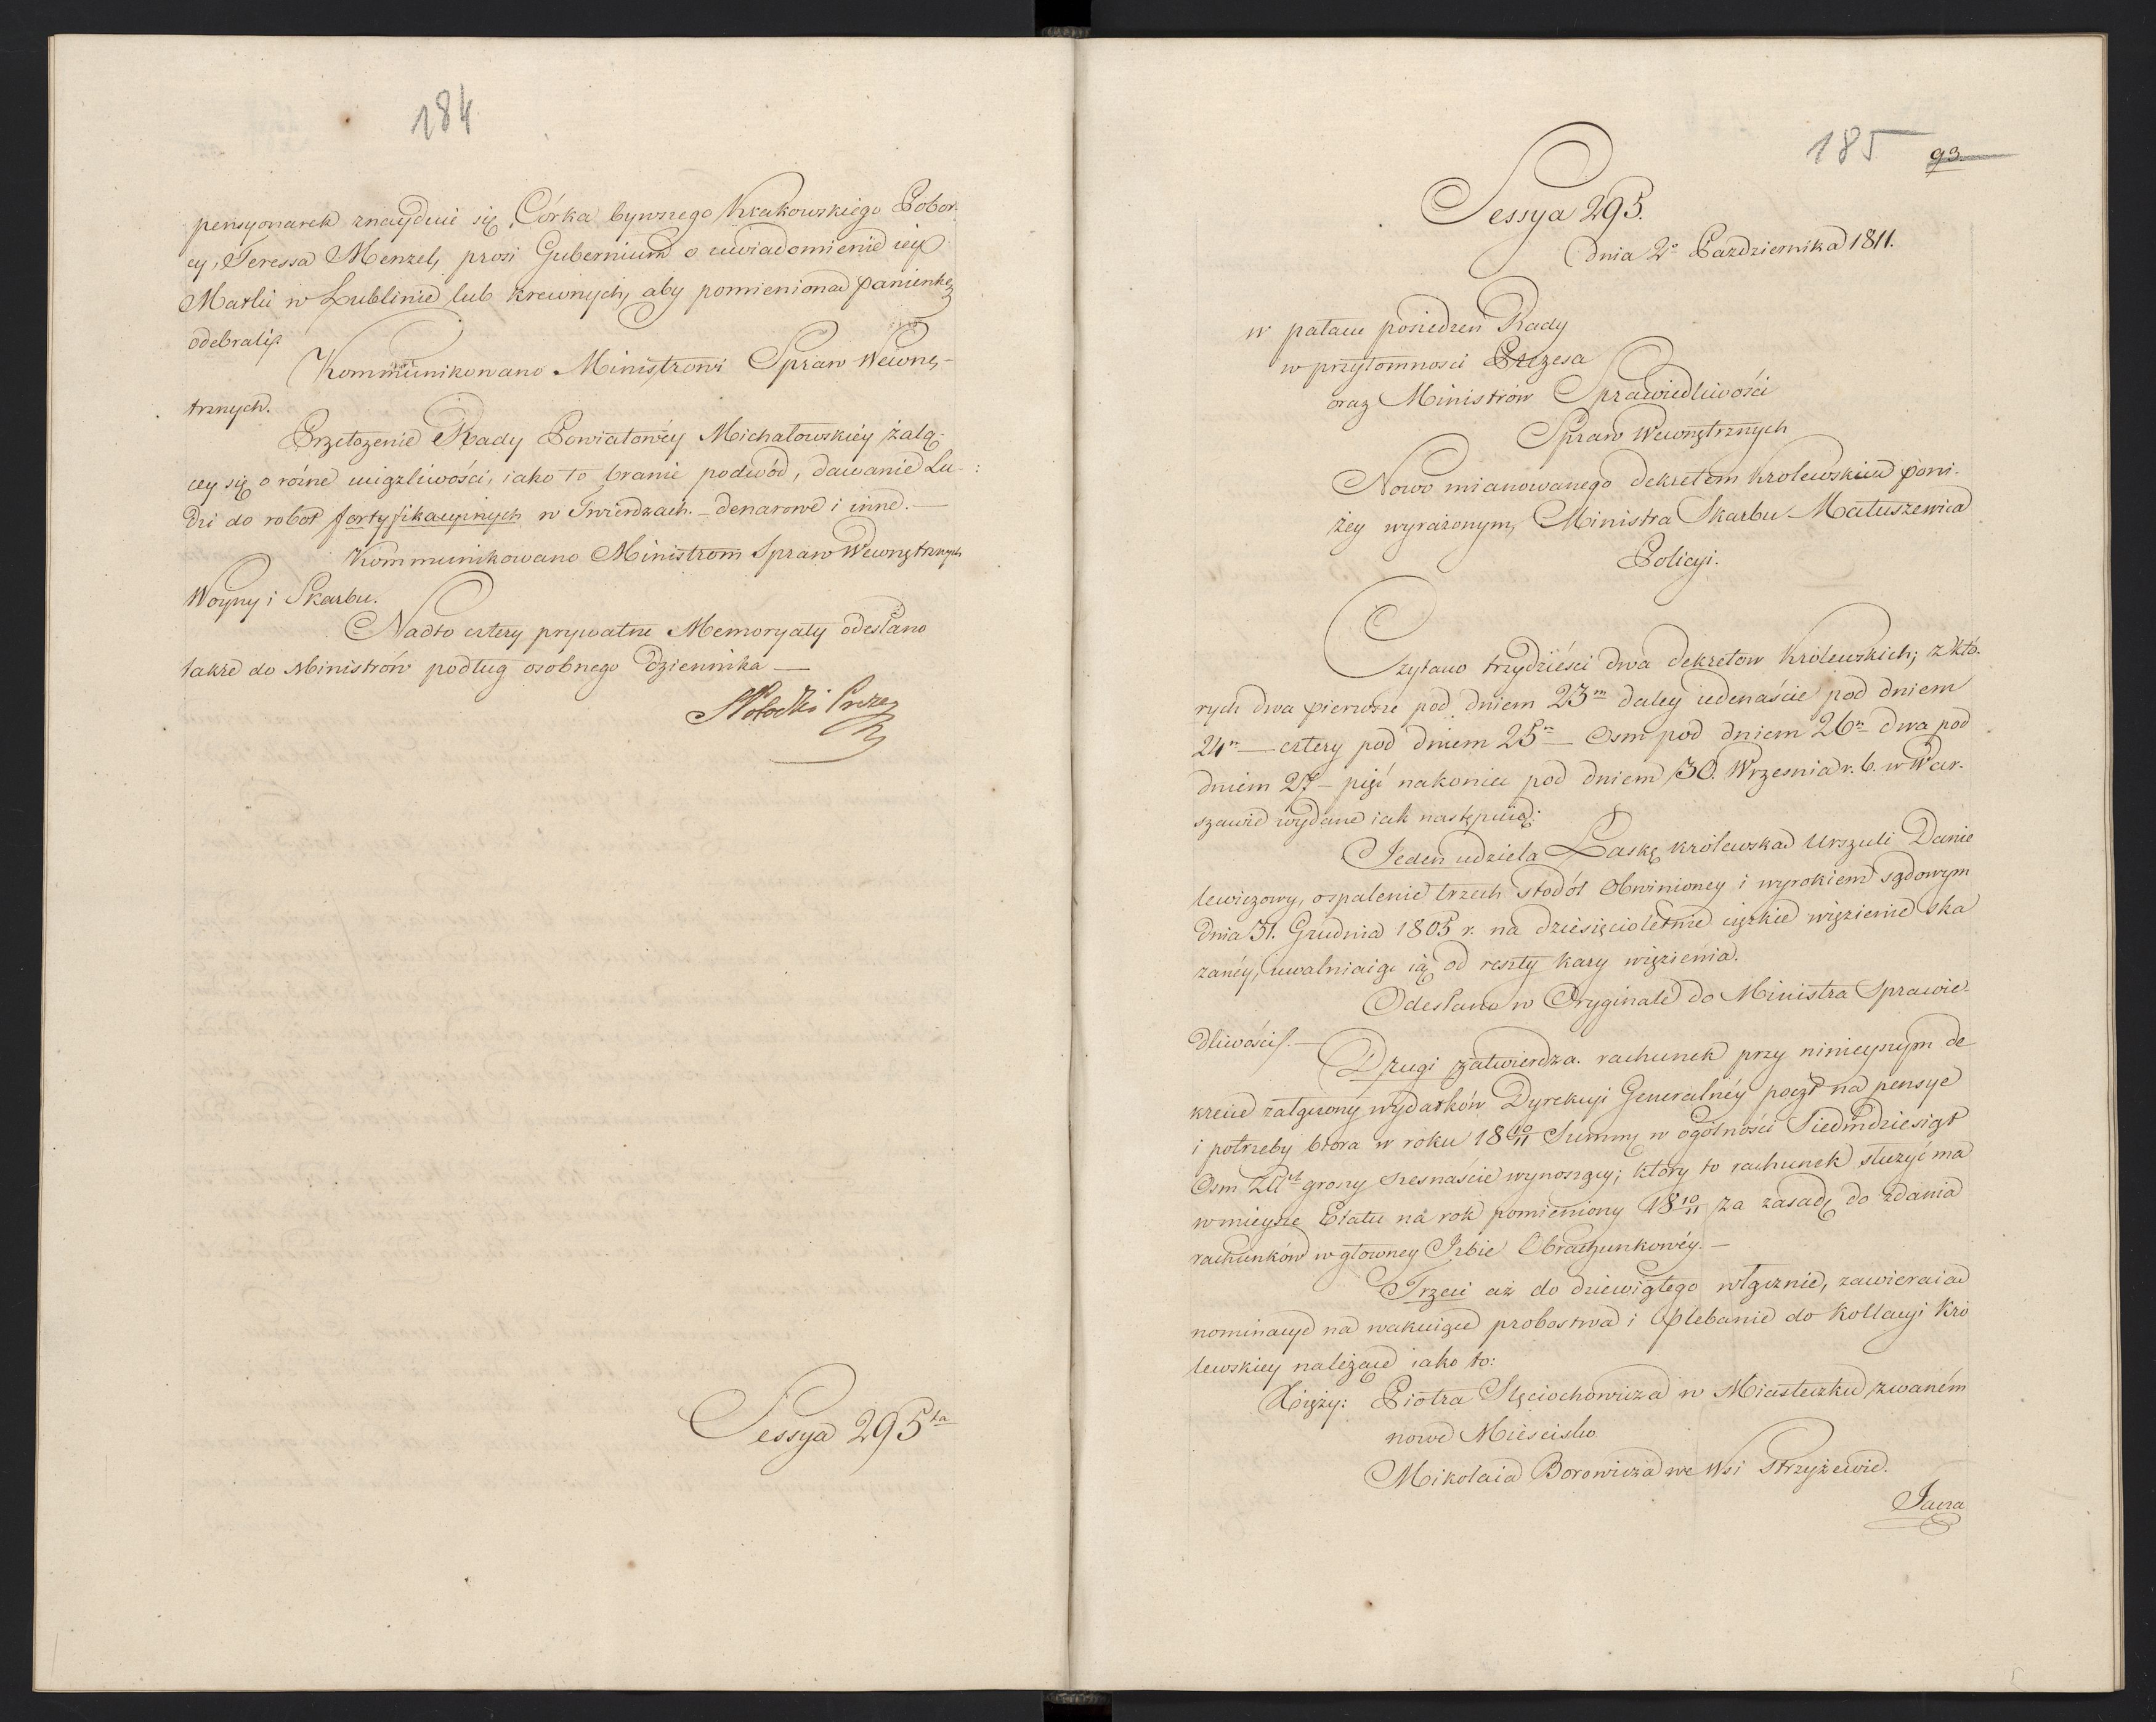 184
pensyonarek znayduie się Córka bywszego Krakowskiego Pobor-
cy, Teressa Menzel, prosi Gubernium o uwiadomienie iey
Matki w Lublinie lub krewnych, aby pomieniona panienkę
odebrali.
Kommunikowano Ministrowi Spraw Wewnę-
trznych.
Przełożenie Rady Powiatowéy Michałowskiéy żalą-
cey się o różne uciążliwości, iako to branie podwód, dawanie Lu-
dzi do robot fortyfikacyinych w Twierdzach. — denarowe i inne. —
Kommunikowano Ministrom Spraw Wewnętrznych
Woyny i Skarbu.
Nadto cztery prywatne Memoryały odesłano
także do Ministrów podług osobnego dziennika —
Potocki Prezes
Sessya 295ta
185 93
Sessya 295.
dnia 2o Pazdziernika 1811.
w pałacu posiedzeń Rady
w przytomnosci Prezesa
oraz Ministrów Sprawiedliwości
Spraw Wewnętrznych
Nowo mianowanego dekretem Krolewskim poni-
żey wyrażonym, Ministra Skarbu Matuszewica
Policyi.
Czytano trzydzieści dwa dekretow Królewskich; z któ-
rych dwa pierwsze pod dniem 23m daley iedenaście pod dniem
24m — cztery pod dniem 25m — Osm pod dniem 26m dwa pod
dniem 27 — pięć nakoniec pod dniem 30. Wrzesnia r. b. w War-
szawie wydane iak nastepuią:
Jeden udziela Łaskę królewską Urszuli Danie
lewiczowy, o spalenie trzech stodół Obwinioney i wyrokiem sądowym
dnia 31. Grudnia 1805 r. na dziesięcioletnie ciężkie więzienie ska
zanéy, uwalniaiąc ią od reszty kary więzienia.
Odesłano w Oryginale do Ministra Sprawie-
dliwości. —
Drugi zatwierdza rachunek przy ninieyszym de
krecie załączony wydatków Dyrekcyi Generalnéy poczt na pensye
i potrzeby biora w roku 18 10/11 Summę w ogólności Siedmdziesiąt
Osm Złłch groszy szesnaście wynoszący; który to rachunek służyć ma
w mieysce Etatu na rok pomieniony 18 10/11 za zasadę do zdania
rachunków w głowney Izbie Obrachunkowéy. —
Trzeci aż do dziewiątego włącznie, zawieraią
nominacye na wakuiące probostwa i Plebanie do Kollacyi Kró
lewskiey należące iako to:
Xięży: Piotra Sięciochowicza w Miasteczku zwaném
nowe Mieścisko
Mikołaia Borowicza we Wsi Strzyżewie.
Jacza